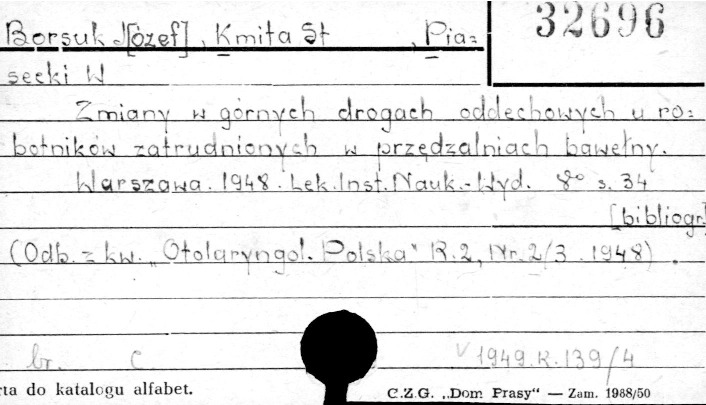 32696
Borsuk J[ózef], Kmita St , Pia=
secki W
Zmiany w górnych drogach oddechowych u ro=
botników zatrudnionych w przędzalniach bawełny.
Warszawa. 1948. Lek. Inst. Nauk.-Wyd. 8° s. 34
[bibliogr.]
(Odb. z kw. „Otolaryngol. Polska" R.2, Nr. 2/3. 1948).
br. C. V 1949.K.139/4
rta do katalogu alfabet. C.Z.G. „Dom Prasy“ — Zam. 1988/50